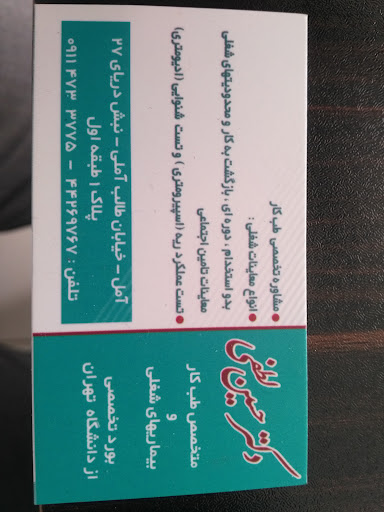 دکتر حسین لطفی
متخصص طب کار
و
بیماریهای شغلی
بورد تخصصی
از دانشگاه تهران
● مشاوره تخصصی طب کار
● انواع معاینات شغلی :
بدو استخدام ، دوره ای ، بازگشت به کار و محدودیتهای شغلی
معاینات تامین اجتماعی
● تست عملکرد ریه (اسپیرومتری) و تست شنوایی (ادیومتری)
آمل - خیابان طالب آملی - نبش دریای ۲۷
پلاک ۱ طبقه اول
تلفن : ۴۴۲۶۹۷۶۷ - ۰۹۱۱ ۴۷۳ ۳۷۷۵